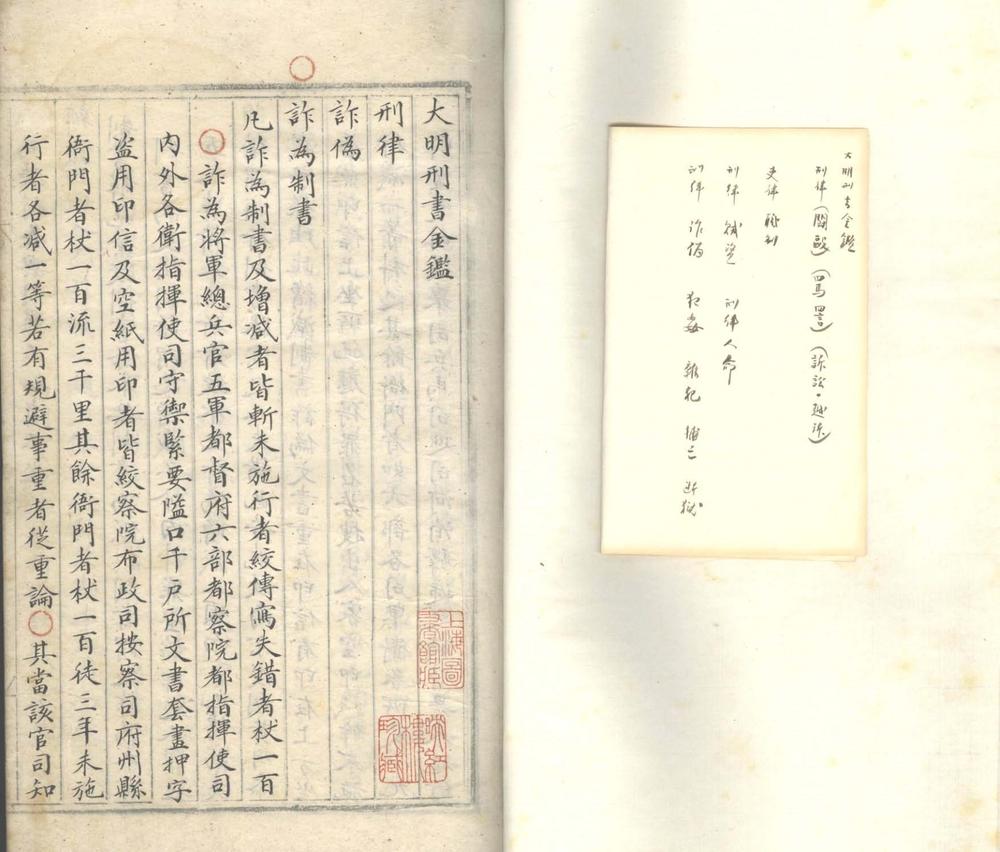 大明刑書金鑑
刑律(鬬毆)(罵詈)(訴訟·越訴)
吏律 職制
刑律 賊盜 刑律人命
刑律 詐僞 犯姦 雜犯 捕亡 斷獄
大明刑書金鑑
刑律
詐偽
詐為制書
凡詐為制書及增減者皆斬未施行者絞傳寫失錯者杖一百
○詐為將軍總兵官五軍都督府六部都察院都指揮使司
內外各衛指揮使司守禦緊要隘口千戶所文書套畫押字
盜用印信及空紙用印者皆絞察院布政司按察司府州縣
衙門者杖一百流三千里其餘衙門者杖一百徒三年未施
行者各減一等若有規避事重者從重論○其當該官司知
上海圖
書館藏